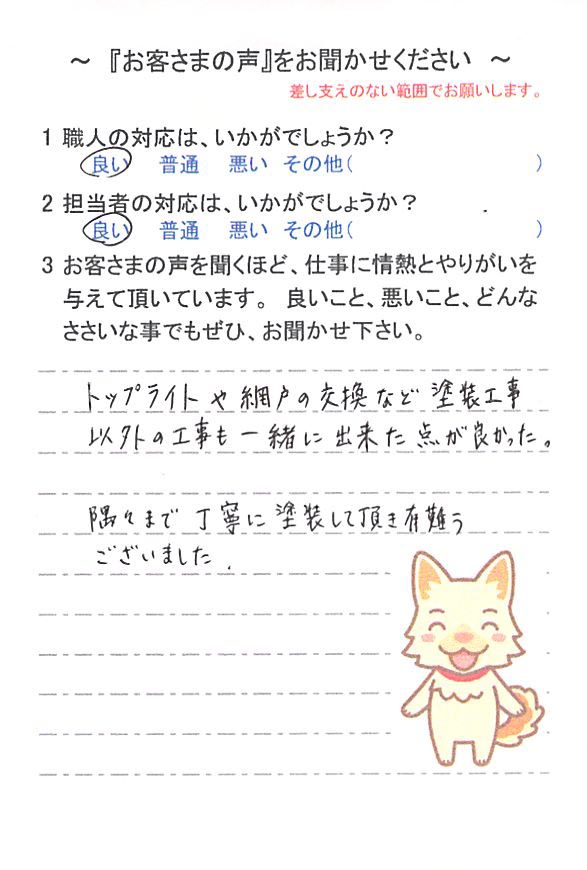 ～ 『お客さまの声』をお聞かせください ～
差し支えのない範囲でお願いします。
1 職人の対応は、いかがでしょうか？
良い 普通 悪い その他( )
2 担当者の対応は、いかがでしょうか？
良い 普通 悪い その他( )
3 お客さまの声を聞くほど、仕事に情熱とやりがいを
与えて頂いています。 良いこと、悪いこと、どんな
ささいな事でもぜひ、お聞かせ下さい。
トップライトや網戸の交換など塗装工事
以外の工事も一緒に出来た点が良かった。
隅々まで丁寧に塗装して頂き有難う
ございました.